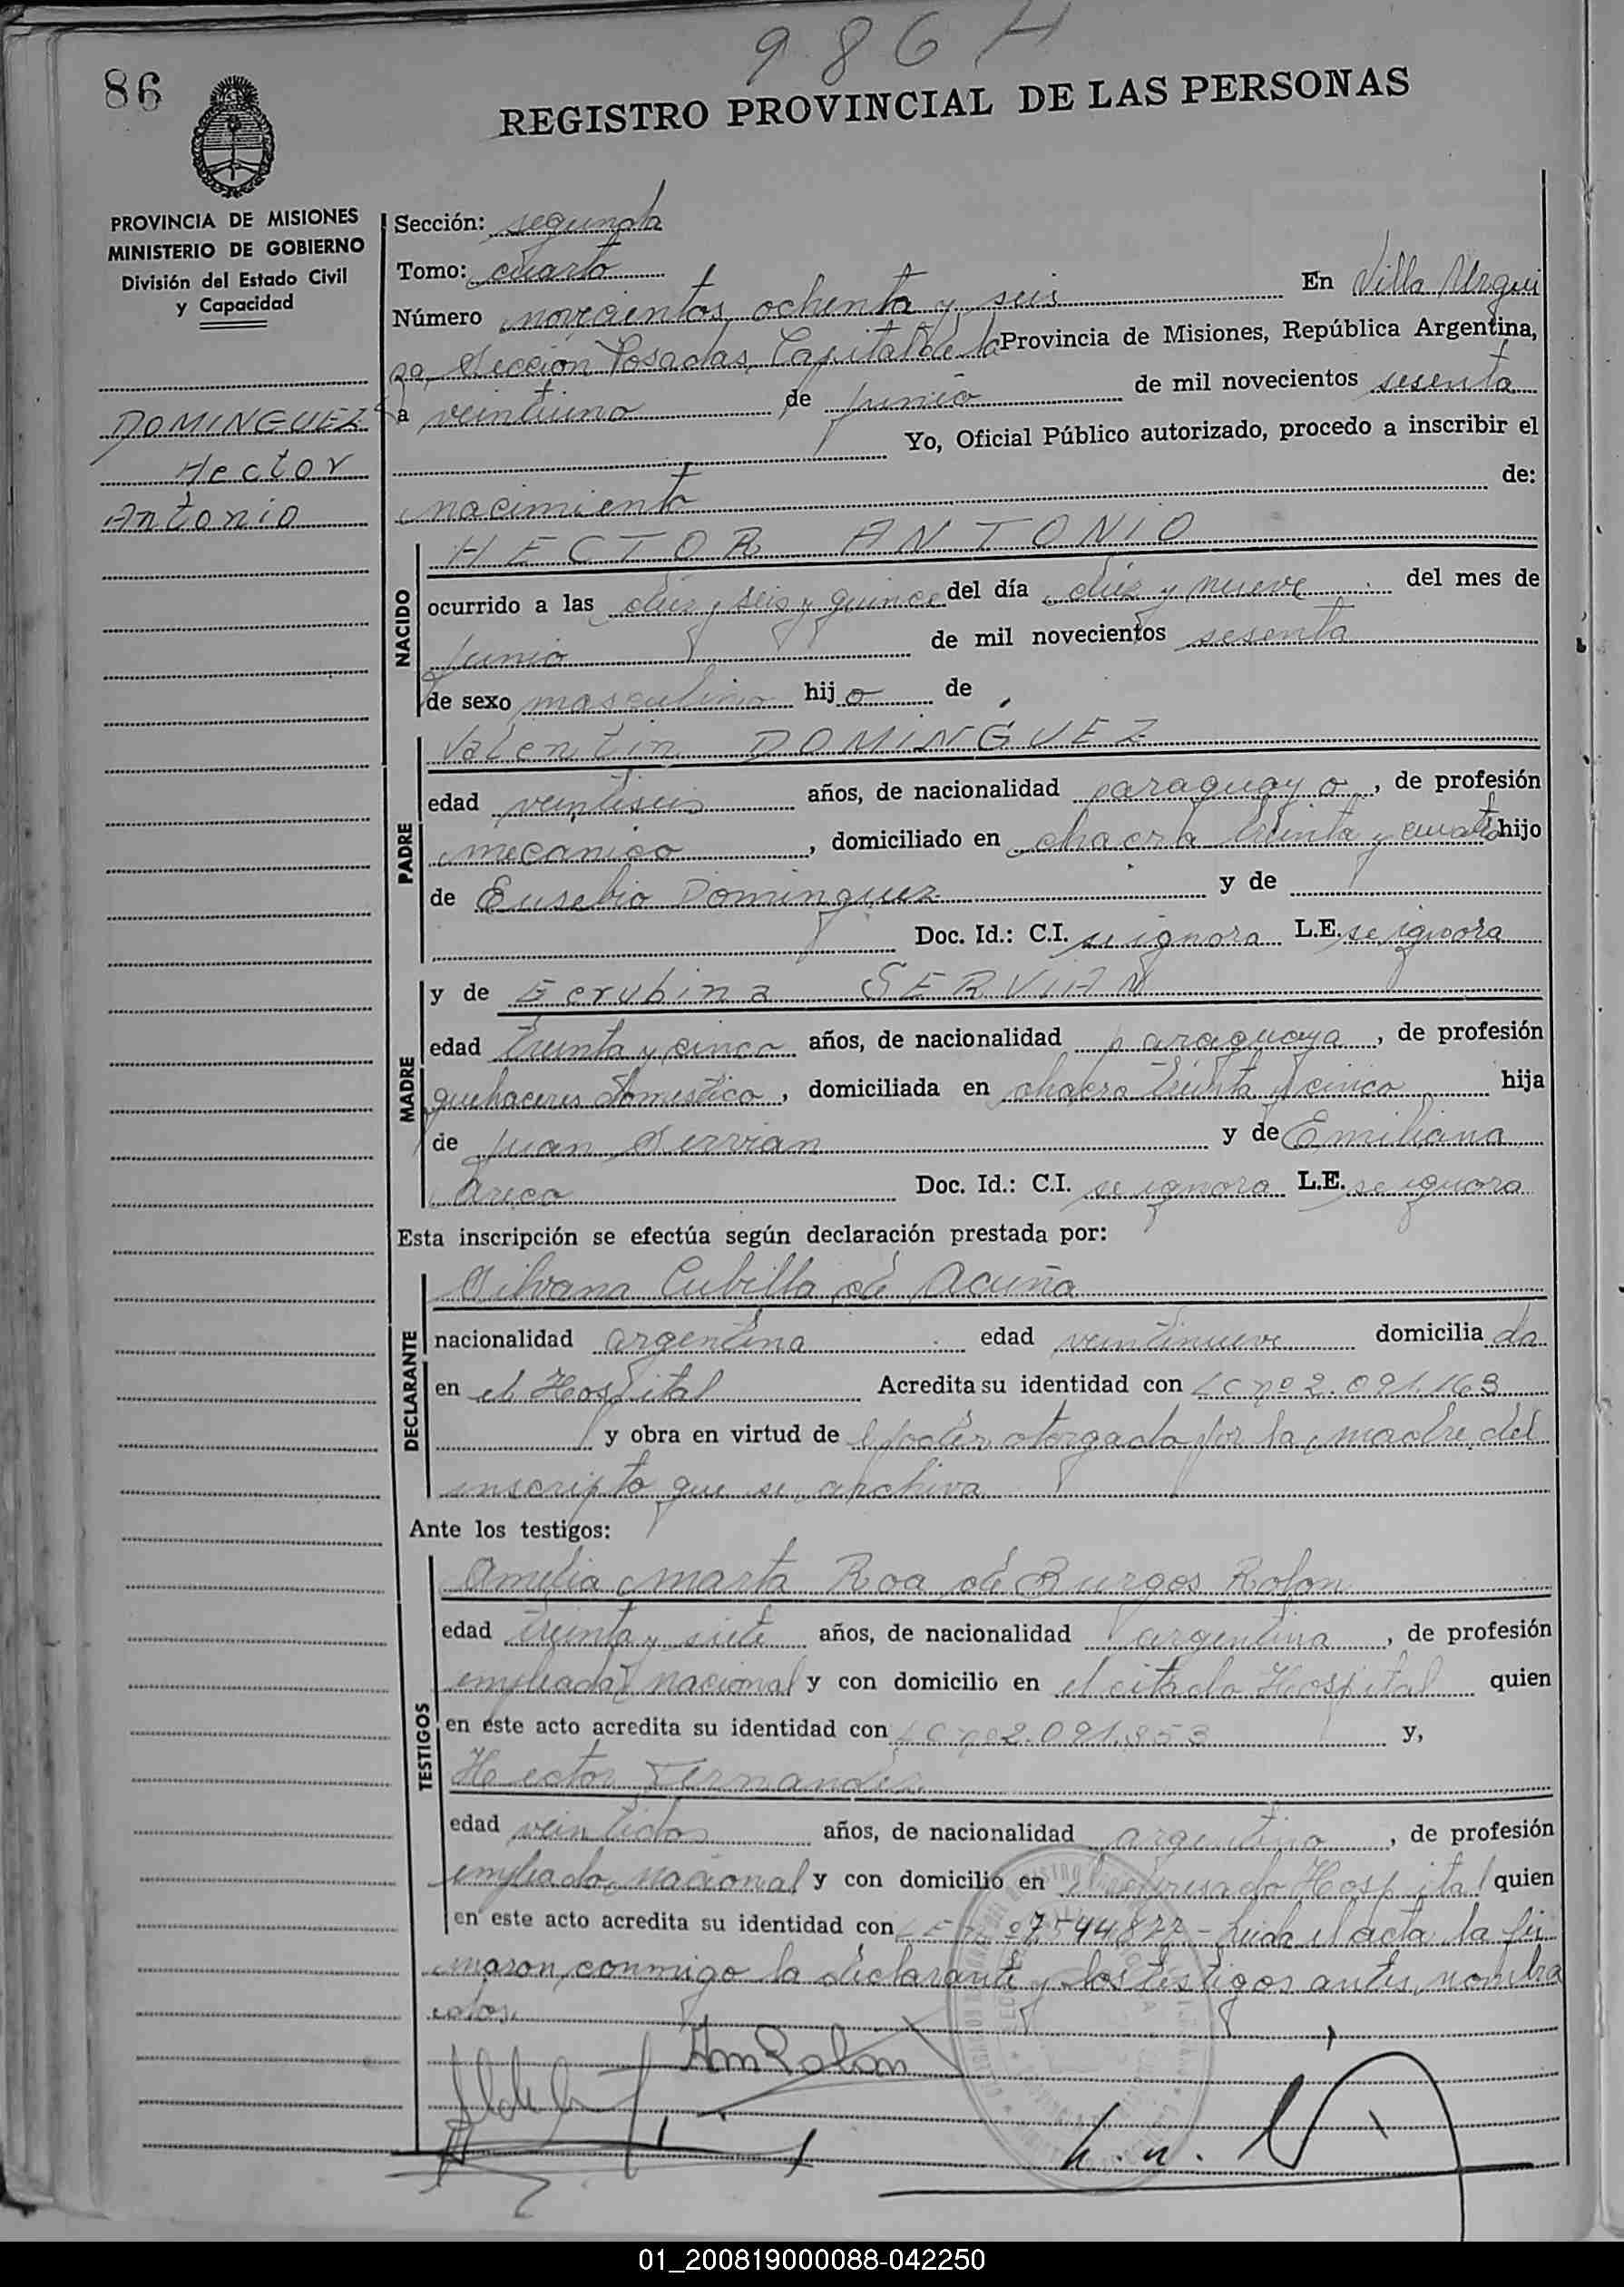 986 H
86
REGISTRO PROVINCIAL DE LAS PERSONAS
PROVINCIA DE MISIONES
MINISTERIO DE GOBIERNO
División del Estado Civil
y Capacidad
DOMINGUEZ
Hector
Antonio
Sección: segunda
Tomo: cuarto
Número novecientos ochenta y seis En Villa Urqui
za, Sección Posadas, Capital de la Provincia de Misiones, República Argentina,
a veintiuno de junio de mil novecientos sesenta
Yo, Oficial Público autorizado, procedo a inscribir el
nacimiento de:
NACIDO
HECTOR ANTONIO
ocurrido a las diez y seis y quince del día diez y nueve del mes de
junio de mil novecientos sesenta
de sexo masculino hijo de
PADRE
Valentin DOMINGUEZ
edad veintiseis años, de nacionalidad paraguayo, de profesión
mecanico, domiciliado en chacra treinta y cuatro hijo
de Eusebio Dominguez y de
Doc. Id.: C.I. se ignora L.E. se ignora
MADRE
y de Eerubina SERVIAN
edad treinta y cinco años, de nacionalidad paraguaya, de profesión
quehaceres domestico, domiciliada en chacra treinta y cinco hija
de Juan Servian y de Emiliana
Areco Doc. Id.: C.I. se ignora L.E. se ignora
Esta inscripción se efectúa según declaración prestada por:
DECLARANTE
Silvana Cubilla de Acuña
nacionalidad argentina edad veintinueve domiciliada
en el Hospital Acredita su identidad con LC nº 2.091.163
y obra en virtud de poder otorgado por la madre del
inscripto que se archiva
Ante los testigos:
TESTIGOS
Amelia Marta Roa de Burgos Rolon
edad treinta y siete años, de nacionalidad argentina, de profesión
empleada nacional y con domicilio en el citado Hospital quien
en este acto acredita su identidad con LC nº 2.091.353 y,
Hector Fernandez
edad veintidos años, de nacionalidad argentino, de profesión
empleado nacional y con domicilio en el expresado Hospital quien
en este acto acredita su identidad con LE nº 7544822 - Leida el acta la fir
maron conmigo la declarante y los testigos antes nombra
dos.
AmRolon
01_200819000088-042250